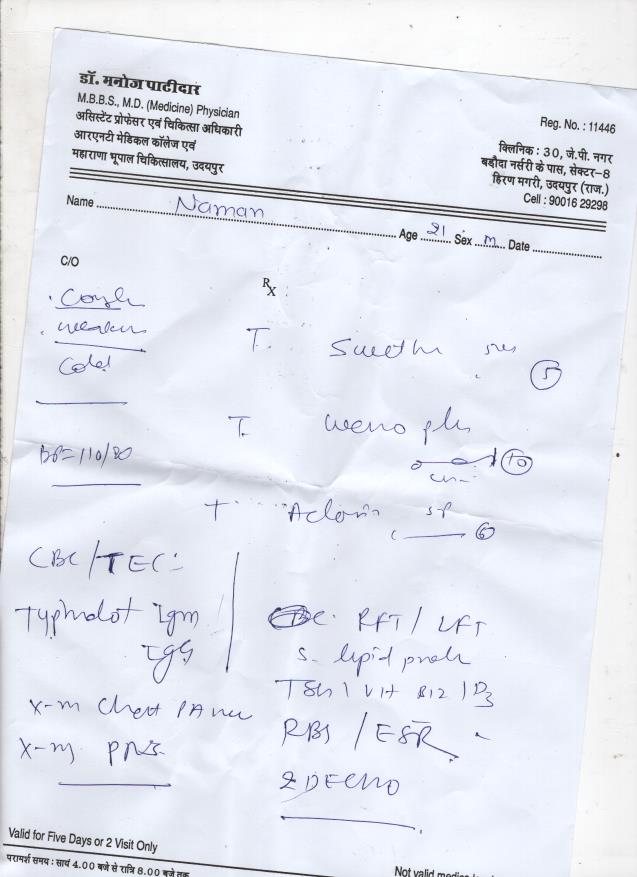 डॉ. मनोज पाटीदार
M.B.B.S., M.D. (Medicine) Physician
असिस्टेंट प्रोफेसर एवं चिकित्सा अधिकारी
आरएनटी मेडिकल कॉलेज एवं
महाराणा भूपाल चिकित्सालय, उदयपुर
Reg. No. : 11446
क्लिनिक : 30, जे.पी. नगर
बड़ौदा नर्सरी के पास, सेक्टर-8
हिरण मगरी, उदयपुर (राज.)
Cell : 90016 29298
Name Naman Age 21 Sex M Date
C/O
Rx
Cough
Cold
T. 5
T. plus
10
BP=110/80
T SP
6
CBC/TEC
Typhidot Igm
IgG
RFT / LFT
S. lipid
TSH / Vit B12 / D3
X-ray Chest PA view
RBS / ESR
X-ray PNS
2DECHO
Valid for Five Days or 2 Visit Only
परामर्श समय : सायं 4.00 बजे से रात्रि 8.00 बजे तक
Not valid